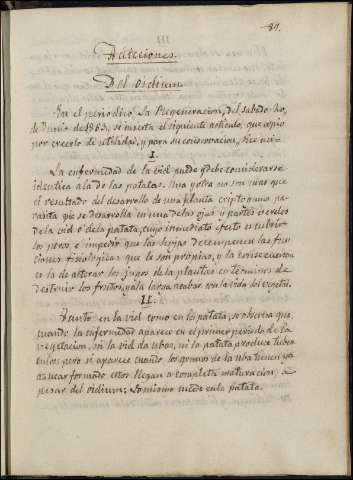 81.
Adicciones.
Del oidium.
En el periodico, La Regeneracion, del sabado 20,
de Junio de 1863, se inserta el siguiente articulo, que copio
por creerlo de utilidad, y para su conservacion, dice asi=
I.
La enfermedad de la vid puede y debe considerarse
identica a la de las patatas. Una y otra no son mas que
el resultado del desarrollo de una planta criptogama pa-
rasita que se desarrolla en una de las ojas y partes verdes
de la vid o de la patata, cuyo inmediato efecto es cubrir
los poros e impedir que las hojas desempeñen las fun
ciones fisiologicas que le son propias, y la consecuencia
es la de alterar los jugos de la planta en terminos de
destruir los frutos, y a la larga acabar con la vida del vegetal.
II.
Tanto en la vid como en la patata, se observa que
cuando la enfermedad aparece en el primer periodo de la
vegetacion, ni la vid da ubas, ni la patata produce tuber
culos; pero si aparece cuando los granos de la uba tienen ya
azucar formado estos llegan a completa maturacion, a
pesar del oidium: Lo mismo sucede en la patata.